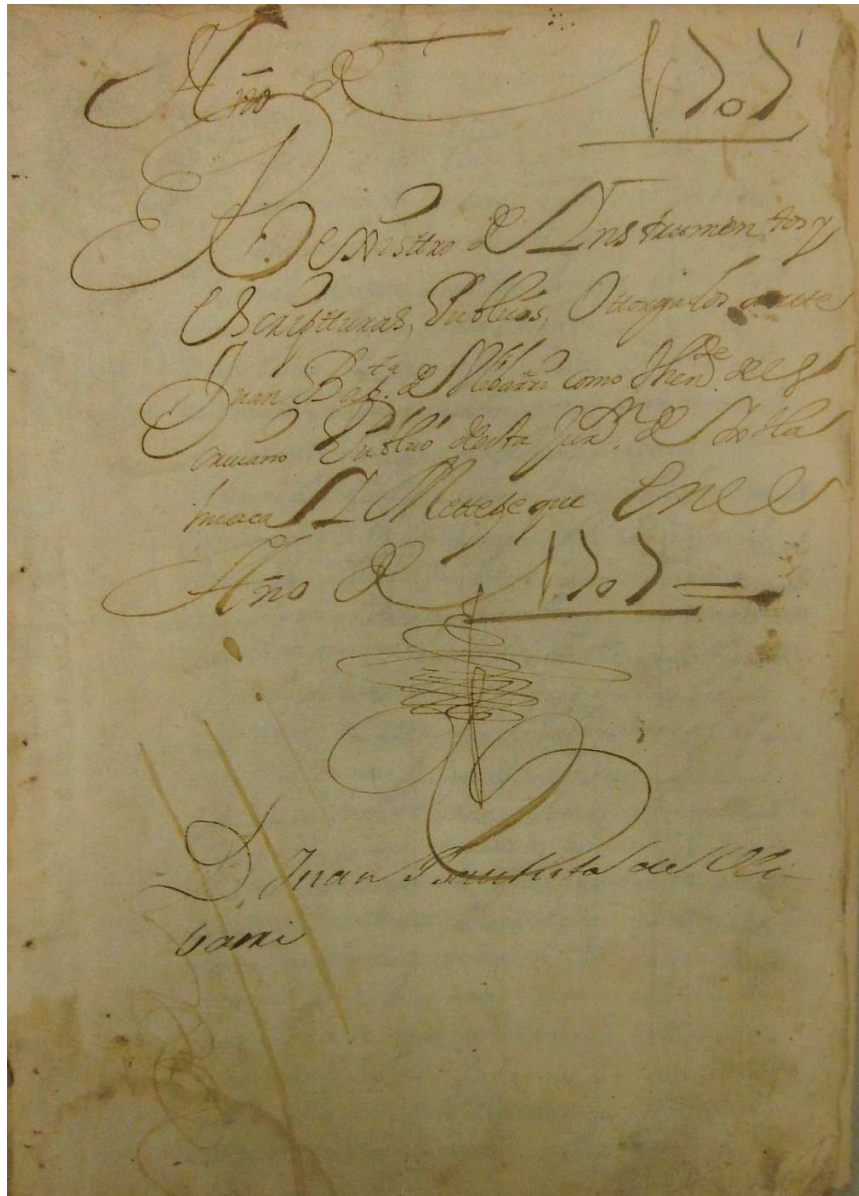 Año de 1707
Rexisttro de Instrumentos y
Escripturas, Publicos. Ottorgados ante
Juan Bap.ta de Olibarri como Then.de del Es
criuano Publico desta Jur.n de Ixtla
huaca I Mettepeque En el
Año de 1707 =
D. Juan Bautista de Oli-
barri